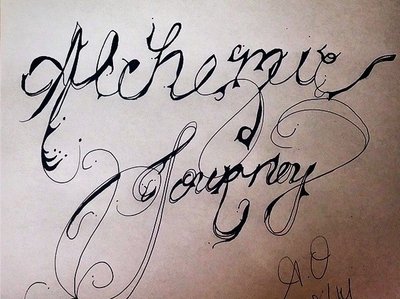 Alchemic
Journey
A.O